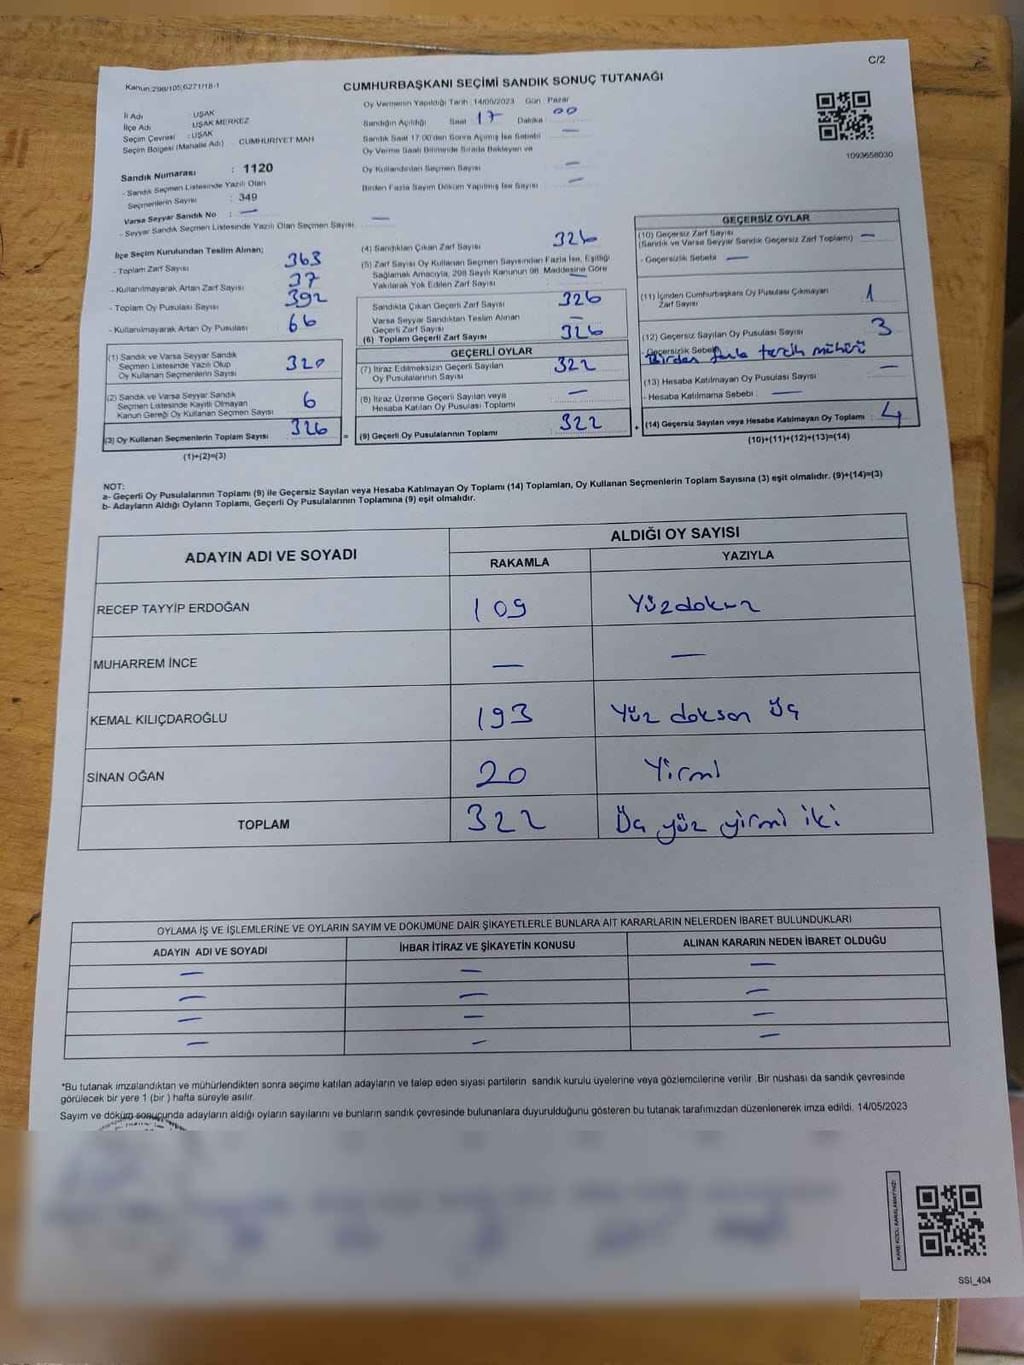 C/2
Kanun:298/105;6271/18-1
CUMHURBAŞKANI SEÇİMİ SANDIK SONUÇ TUTANAĞI
İl Adı : UŞAK
İlçe Adı UŞAK MERKEZ
Seçim Çevresi : UŞAK
Seçim Bölgesi (Mahalle Adı) CUMHURIYET MAH
Oy Vermenin Yapıldığı Tarih :14/05/2023 Gün : Pazar
Sandığın Açıldığı Saat 17 Dakika 00
Sandık Saat 17:00'den Sonra Açılmış İse Sebebi —
Oy Verme Saati Bitiminde Sırada Bekleyen ve
Oy Kullandırılan Seçmen Sayısı —
Birden Fazla Sayım Döküm Yapılmış İse Sayısı —
1093658030
Sandık Numarası : 1120
- Sandık Seçmen Listesinde Yazılı Olan
Seçmenlerin Sayısı : 349
Varsa Seyyar Sandık No : —
- Seyyar Sandık Seçmen Listesinde Yazılı Olan Seçmen Sayısı —
İlçe Seçim Kurulundan Teslim Alınan;
- Toplam Zarf Sayısı 363
- Kullanılmayarak Artan Zarf Sayısı 37
- Toplam Oy Pusulası Sayısı 392
- Kullanılmayarak Artan Oy Pusulası 66
(1) Sandık ve Varsa Seyyar Sandık
Seçmen Listesinde Yazılı Olup
Oy Kullanan Seçmenlerin Sayısı 320
(2) Sandık ve Varsa Seyyar Sandık
Seçmen Listesinde Kayıtlı Olmayan
Kanun Gereği Oy Kullanan Seçmen Sayısı 6
(3) Oy Kullanan Seçmenlerin Toplam Sayısı 326
(1)+(2)=(3)
(4) Sandıktan Çıkan Zarf Sayısı 326
(5) Zarf Sayısı Oy Kullanan Seçmen Sayısından Fazla İse, Eşitliği
Sağlamak Amacıyla, 298 Sayılı Kanunun 98. Maddesine Göre
Yakılarak Yok Edilen Zarf Sayısı —
Sandıkta Çıkan Geçerli Zarf Sayısı 326
Varsa Seyyar Sandıktan Teslim Alınan
Geçerli Zarf Sayısı —
(6) Toplam Geçerli Zarf Sayısı 326
GEÇERLİ OYLAR
(7) İtiraz Edilmeksizin Geçerli Sayılan
Oy Pusulalarının Sayısı 322
(8) İtiraz Üzerine Geçerli Sayılan veya
Hesaba Katılan Oy Pusulası Toplamı —
= (9) Geçerli Oy Pusulalarının Toplamı 322
GEÇERSİZ OYLAR
(10) Geçersiz Zarf Sayısı
(Sandık ve Varsa Seyyar Sandık Geçersiz Zarf Toplamı) —
- Geçersizlik Sebebi —
(11) İçinden Cumhurbaşkanı Oy Pusulası Çıkmayan
Zarf Sayısı 1
(12) Geçersiz Sayılan Oy Pusulası Sayısı 3
- Geçersizlik Sebebi Birden fazla tercih mühürü
(13) Hesaba Katılmayan Oy Pusulası Sayısı —
- Hesaba Katılmama Sebebi : —
+ (14) Geçersiz Sayılan veya Hesaba Katılmayan Oy Toplamı 4
(10)+(11)+(12)+(13)=(14)
NOT:
a- Geçerli Oy Pusulalarının Toplamı (9) ile Geçersiz Sayılan veya Hesaba Katılmayan Oy Toplamı (14) Toplamları, Oy Kullanan Seçmenlerin Toplam Sayısına (3) eşit olmalıdır. (9)+(14)=(3)
b- Adayların Aldığı Oyların Toplamı, Geçerli Oy Pusulalarının Toplamına (9) eşit olmalıdır.
ADAYIN ADI VE SOYADI
ALDIĞI OY SAYISI
RAKAMLA YAZIYLA
RECEP TAYYİP ERDOĞAN 109 Yüzdokuz
MUHARREM İNCE — —
KEMAL KILIÇDAROĞLU 193 Yüz doksan üç
SİNAN OĞAN 20 Yirmi
TOPLAM 322 Üç yüz yirmi iki
OYLAMA İŞ VE İŞLEMLERİNE VE OYLARIN SAYIM VE DÖKÜMÜNE DAİR ŞİKAYETLERLE BUNLARA AİT KARARLARIN NELERDEN İBARET BULUNDUKLARI
ADAYIN ADI VE SOYADI İHBAR İTİRAZ VE ŞİKAYETİN KONUSU ALINAN KARARIN NEDEN İBARET OLDUĞU
— — —
— — —
— — —
— — —
*Bu tutanak imzalandıktan ve mühürlendikten sonra seçime katılan adayların ve talep eden siyasi partilerin sandık kurulu üyelerine veya gözlemcilerine verilir. Bir nüshası da sandık çevresinde
görülecek bir yere 1 (bir ) hafta süreyle asılır.
Sayım ve döküm sonucunda adayların aldığı oyların sayılarını ve bunların sandık çevresinde bulunanlara duyurulduğunu gösteren bu tutanak tarafımızdan düzenlenerek imza edildi. 14/05/2023
KARE KODU KARALAMAYINIZ!
SSI_404